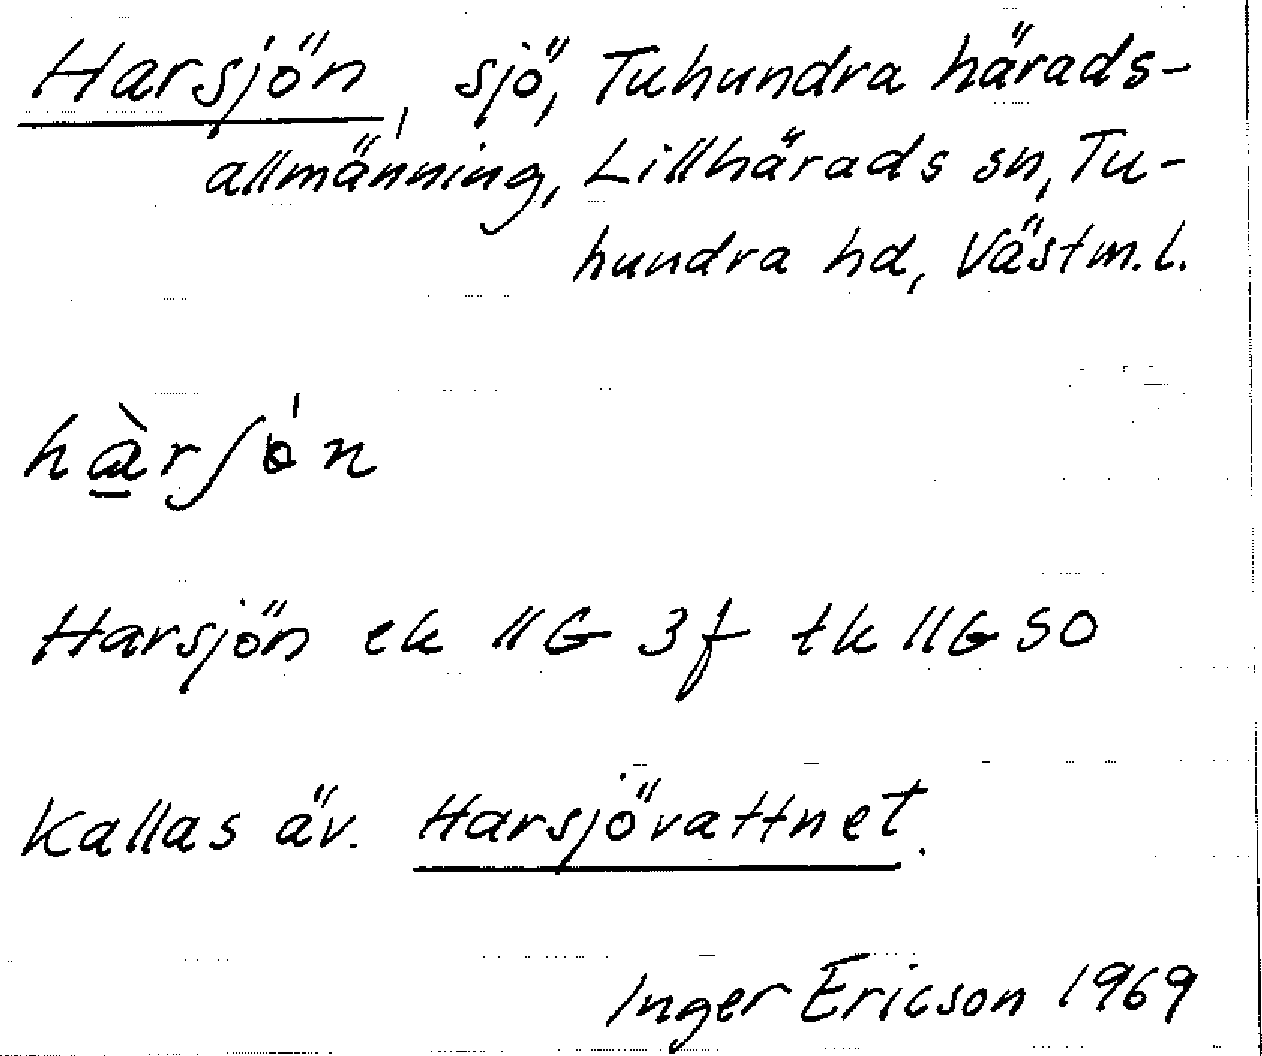 Harsjön, sjö, Tuhundra härads-
allmänning, Lillhärads sn, Tu-
hundra hd, Västm. l.
Harsjön ek 11G 3f tk 11G SO
Kallas äv. Harsjövattnet.
Inger Ericson 1969